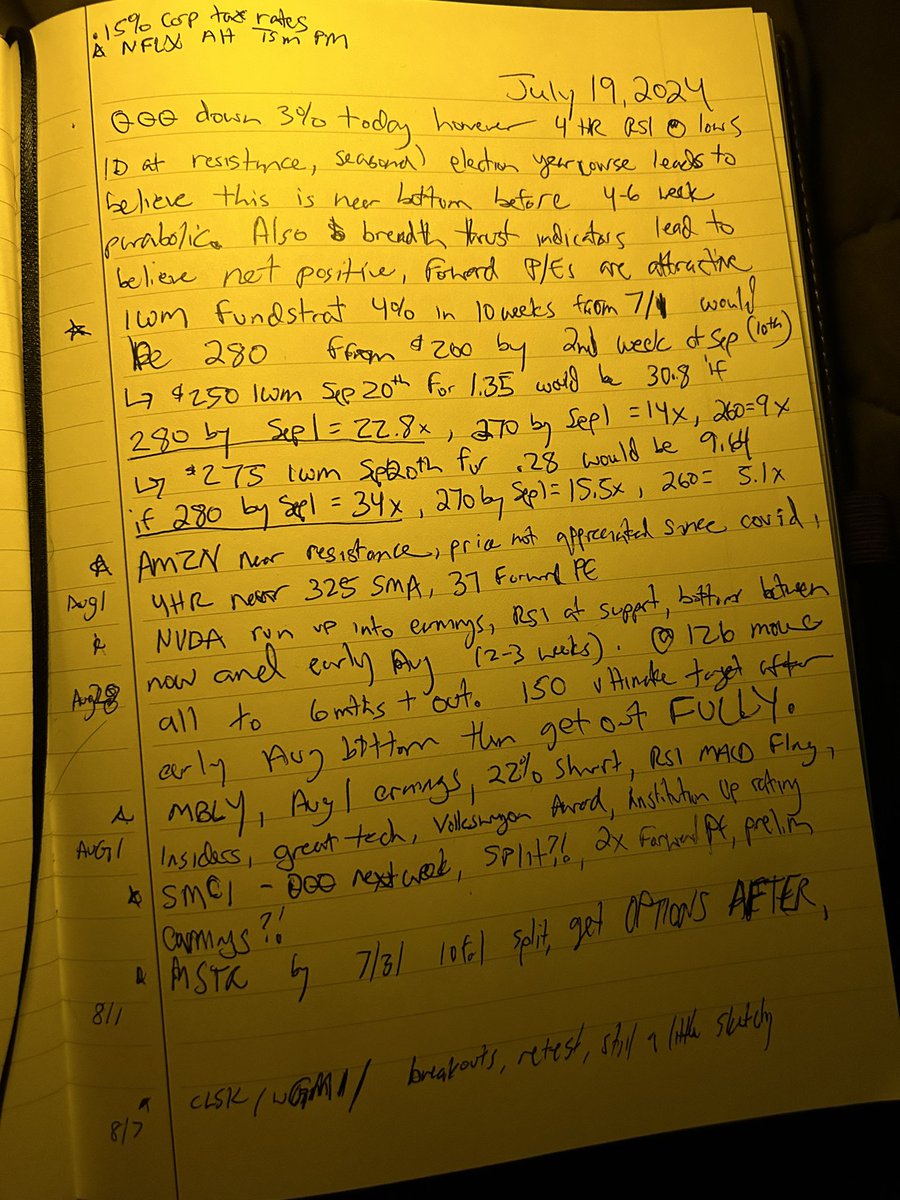 .15% Corp tax rates
NFLX AH TSM PM
July 19, 2024
QQQ down 3% today however 4 HR RSI @ lows
1D at resistance, seasonal election year course leads to
believe this is near bottom before 4-6 week
parabolic. Also breadth thrust indicators lead to
believe net positive, forward P/Es are attractive
IWM Fundstrat 4% in 10 weeks from 7/1 would
be 280 from $200 by 2nd week of Sep (10th)
↳ $250 IWM Sep 20th for 1.35 would be 30.8 if
280 by Sep 1 = 22.8x, 270 by Sep 1 = 14x, 260=9x
↳ $275 IWM Sep 20th for .28 would be 9.64
if 280 by Sep 1 = 34x, 270 by Sep 1 = 15.5x, 260= 5.1x
AMZN near resistance, price not appreciated since covid,
Aug 1 4HR near 325 SMA, 37 Forward PE
NVDA run up into earnings, RSI at support, bottom between
now and early Aug (2-3 weeks). @ 126 move
Aug 28 all to 6mths + out. 150 target after
early Aug bottom then get out FULLY.
MBLY, Aug 1 earnings, 22% short, RSI MACD Flag,
AUG 1 Insiders, great tech, Volkswagon, institution up rating
SMCI - QQQ next week, split?!, 2x Forward PE, prelim
earnings?!
MSTR by 7/31 10 for 1 split, get OPTIONS AFTER,
8/1
CLSK/WGMI/ breakouts, retest, still a little sketchy
8/7